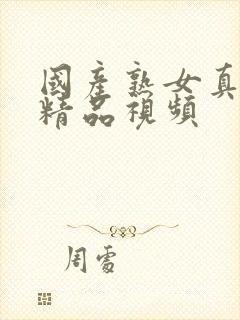 國產熟女真
精品視頻
周雷